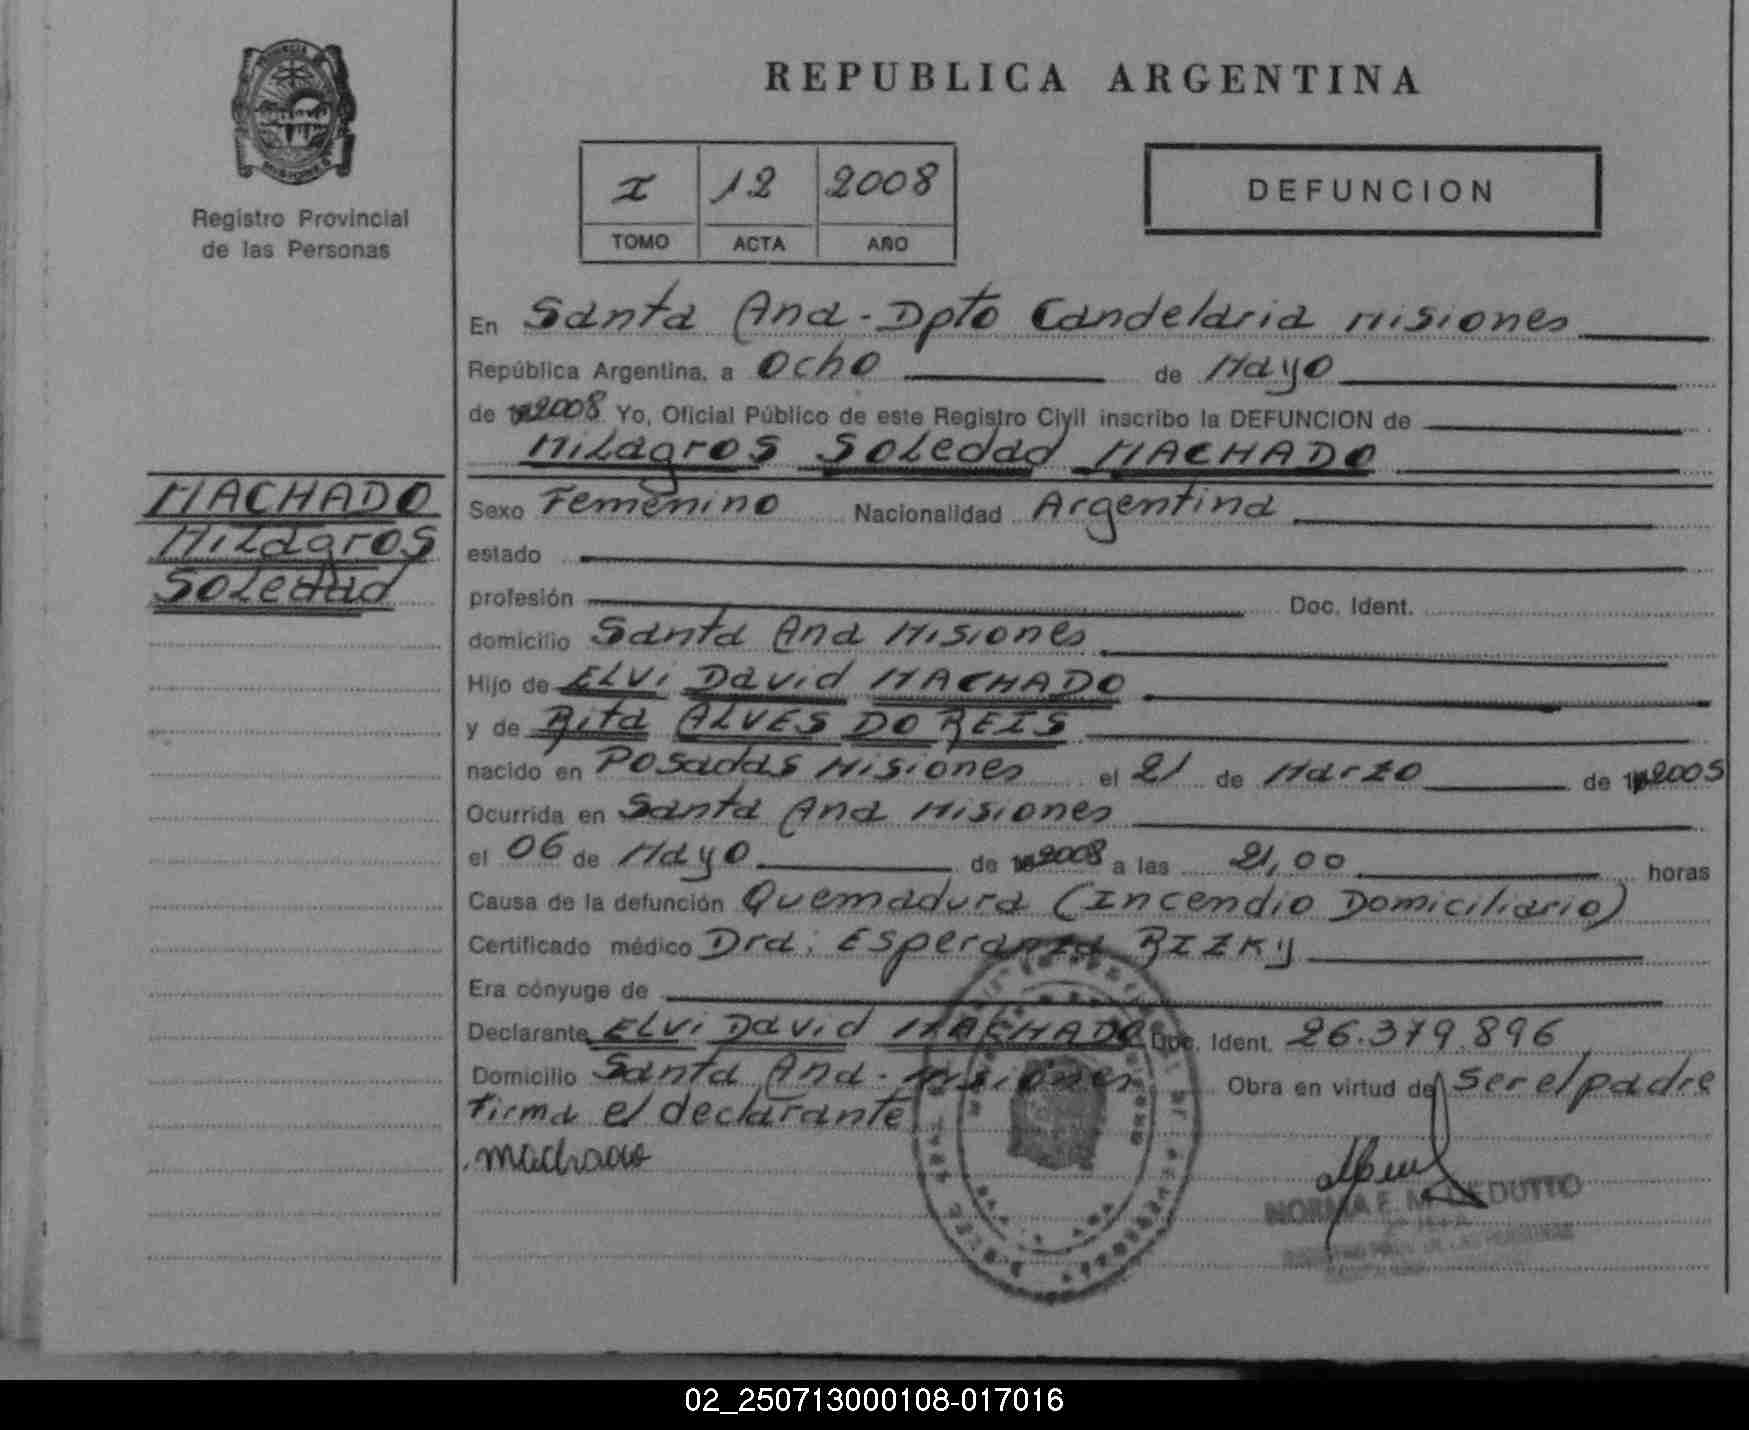 REPUBLICA ARGENTINA
Registro Provincial
de las Personas
I 12 2008
TOMO ACTA AÑO
DEFUNCION
En Santa Ana - Dpto Candelaria Misiones
República Argentina, a Ocho de Mayo
de 2008 Yo, Oficial Público de este Registro Civil inscribo la DEFUNCION de
Milagros Soledad MACHADO
MACHADO
Milagros
Soledad
Sexo Femenino Nacionalidad Argentina
estado
profesión Doc. Ident.
domicilio Santa Ana Misiones
Hijo de ELVi David MACHADO
y de Rita ALVES DO REIS
nacido en Posadas Misiones el 21 de Marzo de 2005
Ocurrida en Santa Ana Misiones
el 06 de Mayo de 2008 a las 21,00 horas
Causa de la defunción Quemadura (Incendio Domiciliario)
Certificado médico Dra. Esperanza RIZKY
Era cónyuge de
Declarante ELVi David MACHADO Doc. Ident. 26.379.896
Domicilio Santa Ana - Misiones Obra en virtud de ser el padre
firma el declarante
machado
NORMA E.
02_250713000108-017016